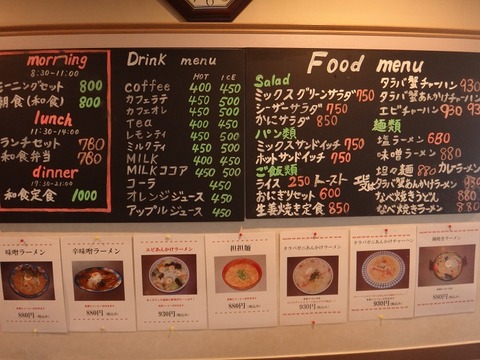 morning
8:30-11:00
モーニングセット 800
朝食(和食) 800
lunch
11:30-14:00
ランチセット 780
和食弁当 780
dinner
17:30-21:00
和食定食 1000
Drink menu
HOT ICE
coffee 400 450
カフェラテ 450 500
カフェオレ 450 500
Tea 400 450
レモンティ 450 500
ミルクティ 450 500
MILK 400 450
MILKココア 450 500
コーラ 450
オレンジジュース 450
アップルジュース 450
Food menu
Salad
ミックスグリーンサラダ 750
シーザーサラダ 750
かにサラダ 850
パン類
ミックスサンドイッチ 750
ホットサンドイッチ 750
ご飯類
ライス 250 トースト
おにぎりセット 600
生姜焼き定食 850
タラバ蟹チャーハン 930
タラバ蟹あんかけチャーハン 930
エビチャーハン 930
麺類
塩ラーメン 680
味噌ラーメン 880
坦々麺 880 カレーラーメン
タラバ蟹あんかけラーメン 930
なべ焼きうどん 880
なべ焼きラーメン 880
味噌ラーメン
880円
辛味噌ラーメン
880円
エビあんかけラーメン
930円
担担麺
880円
タラバガニあんかけラーメン
930円
タラバガニあんかけチャーハン
930円
鍋焼きラーメン
880円